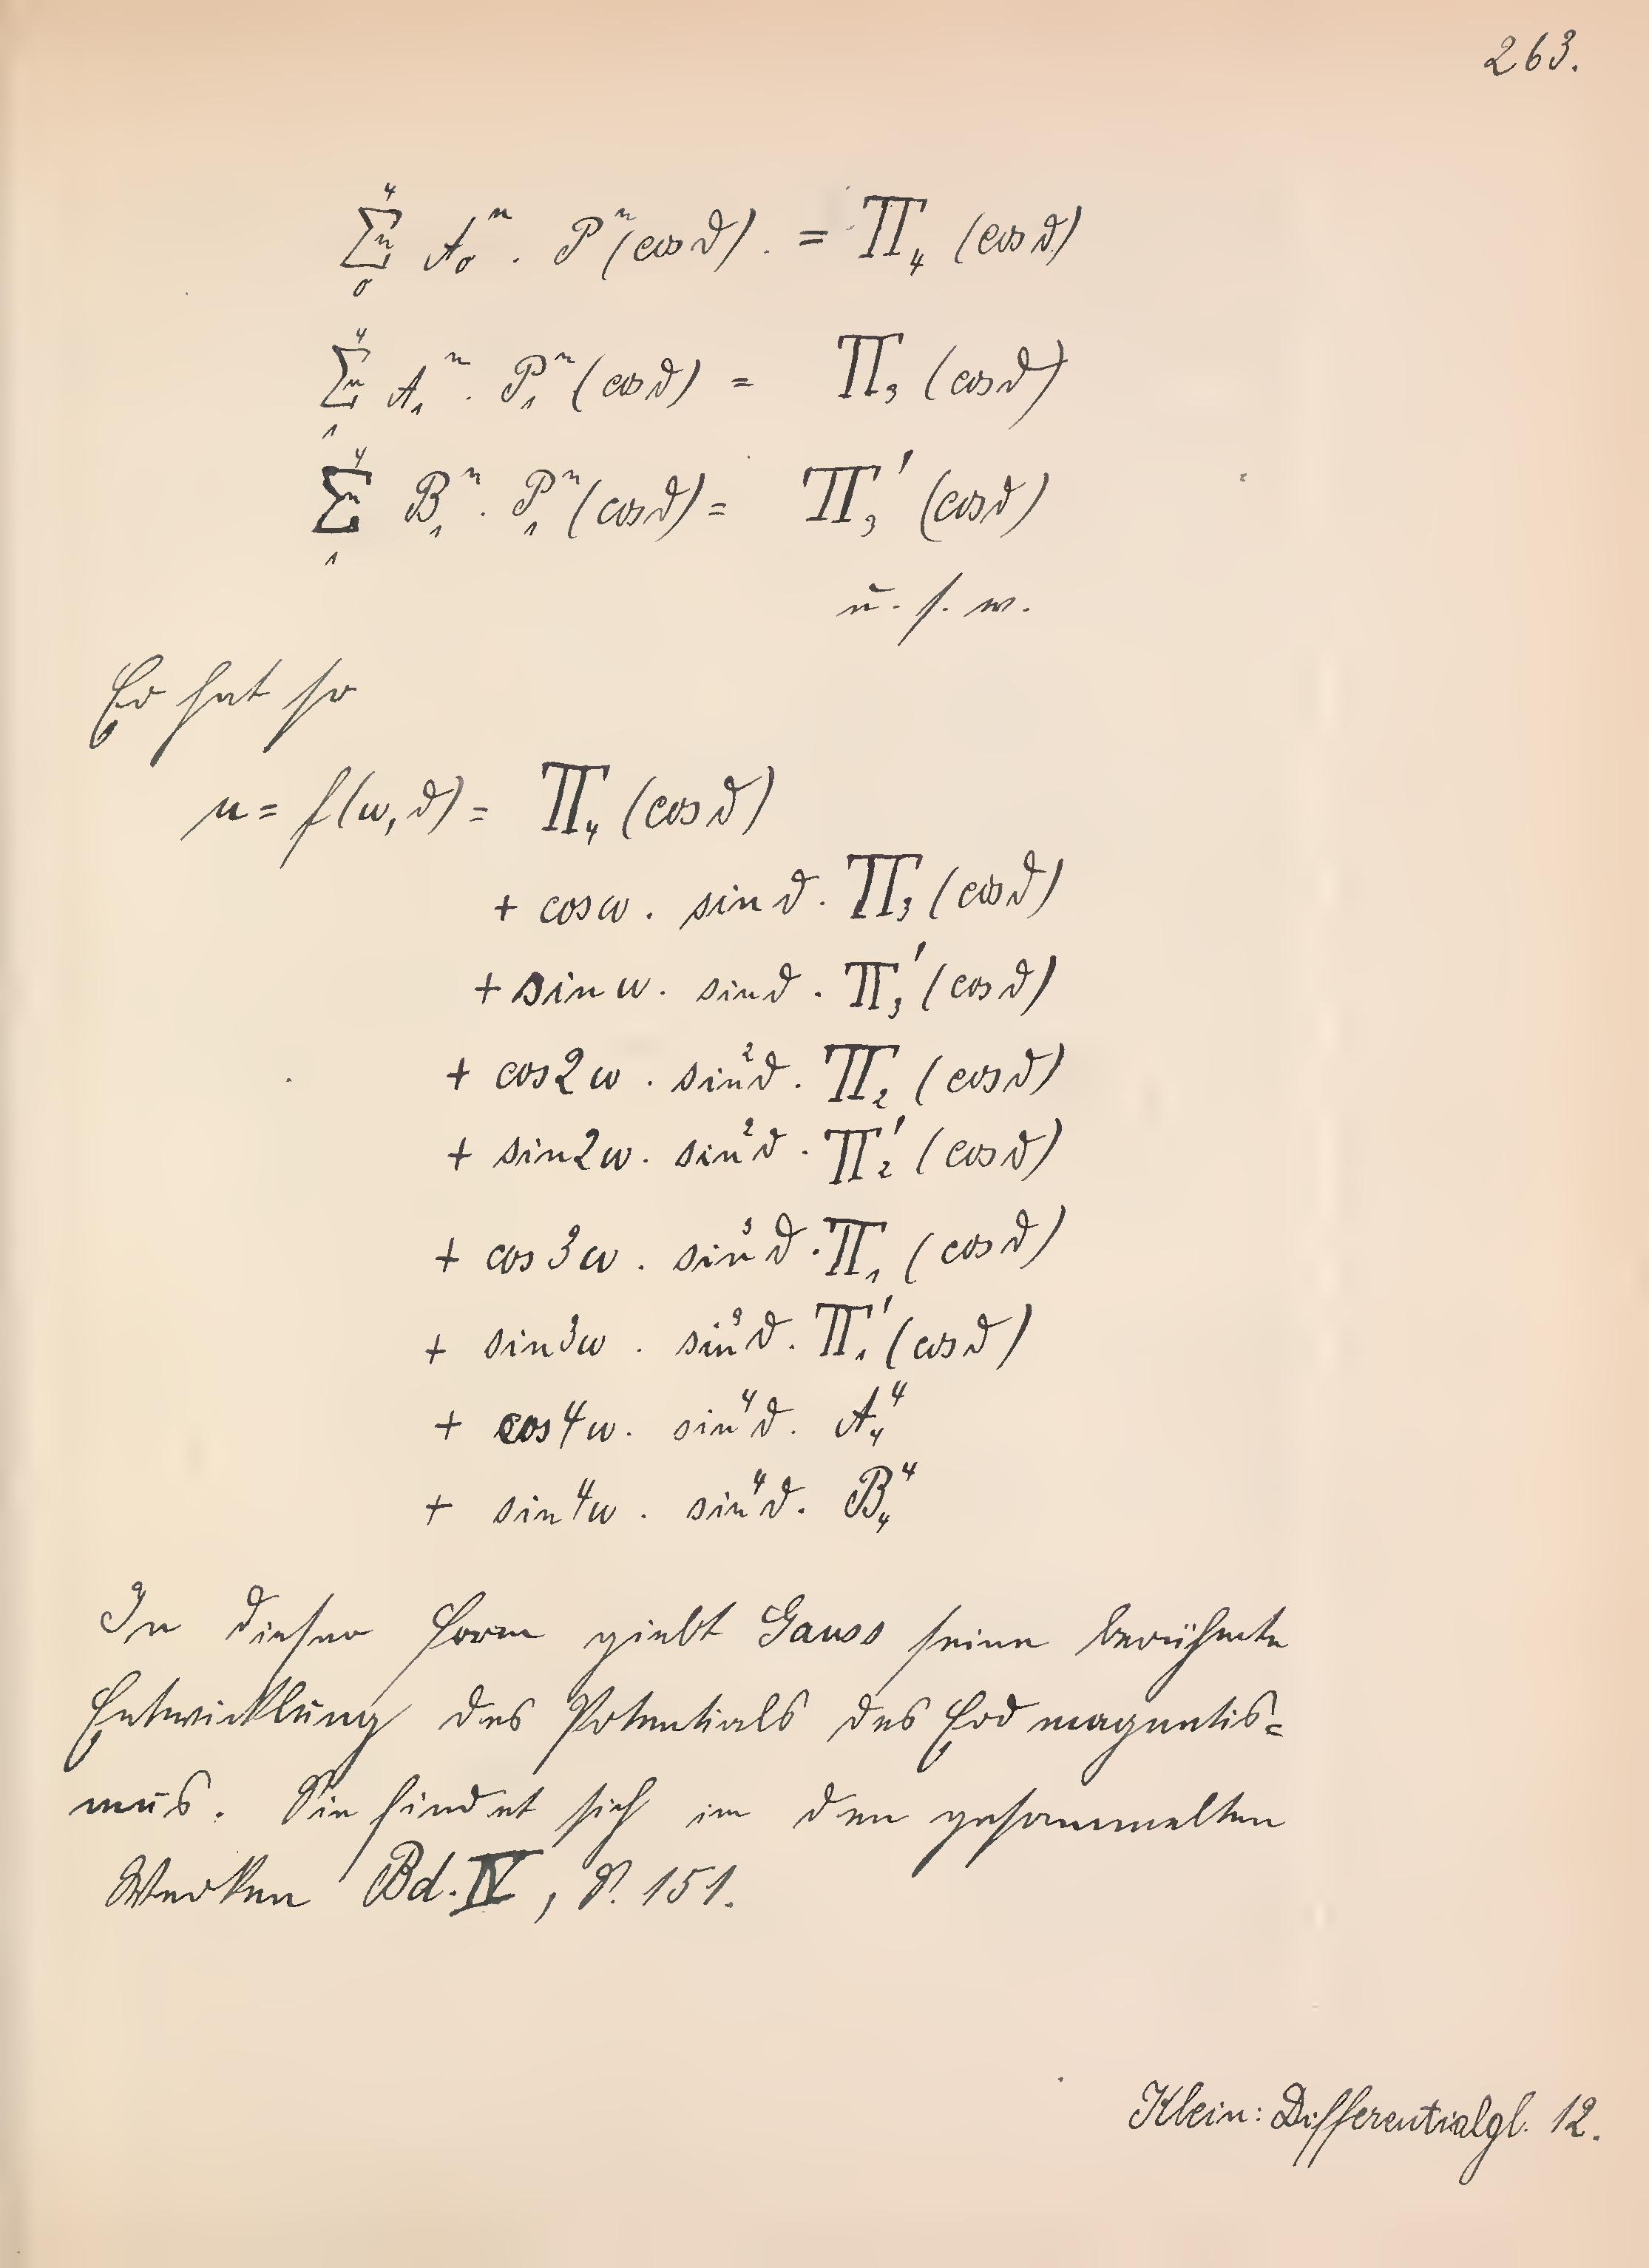 263.
$\sum_{0}^{4}{}_{n} A_0^n . P^n(\cos\vartheta). = \Pi_4 (\cos\vartheta)$
$\sum_{1}^{4}{}_{n} A_1^n . P_1^n(\cos\vartheta) = \Pi_3 (\cos\vartheta)$
$\sum_{1}^{4}{}_{n} B_1^n . P_1^n(\cos\vartheta) = \Pi_3' (\cos\vartheta)$
u. s. w.
Er hat so
$u = f(\omega, \vartheta) = \Pi_4 (\cos\vartheta)$
$+ \cos\omega . \sin\vartheta . \Pi_3 (\cos\vartheta)$
$+ \sin\omega . \sin\vartheta . \Pi_3' (\cos\vartheta)$
$+ \cos 2\omega . \sin^2\vartheta . \Pi_2 (\cos\vartheta)$
$+ \sin 2\omega . \sin^2\vartheta . \Pi_2' (\cos\vartheta)$
$+ \cos 3\omega . \sin^3\vartheta . \Pi_1 (\cos\vartheta)$
$+ \sin 3\omega . \sin^3\vartheta . \Pi_1' (\cos\vartheta)$
$+ \cos 4\omega . \sin^4\vartheta . A_4^4$
$+ \sin 4\omega . \sin^4\vartheta . B_4^4$
In dieser Form giebt Gauss seine berühmte
Entwicklung des Potentials des Erdmagnetis=
mus. Sie findet sich in den gesammelten
Werken Bd. IV, S. 151.
Klein: Differentialgl. 12.